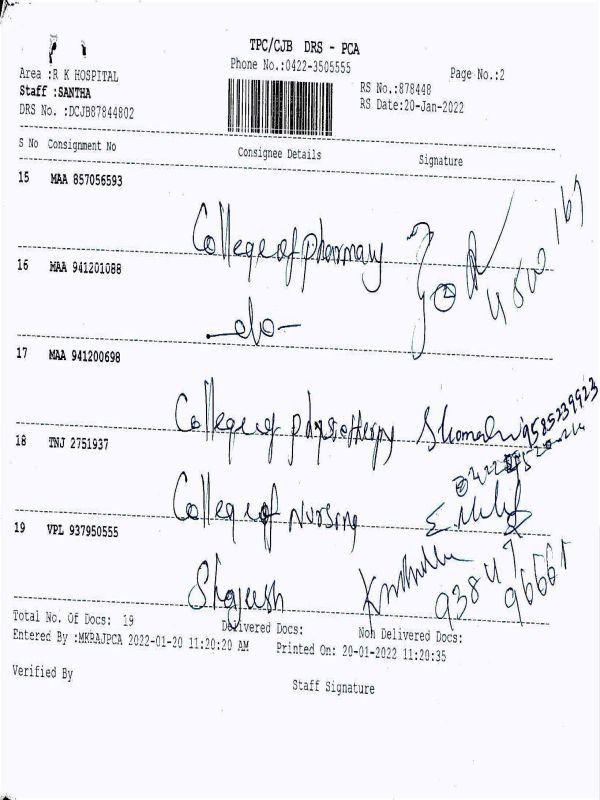 TPC/CJB DRS - PCA
Phone No.:0422-3505555
Page No.:2
Area :R K HOSPITAL
Staff :SANTHA
DRS No. :DCJB87844802
RS No.:878448
RS Date:20-Jan-2022
S No Consignment No Consignee Details Signature
15 MAA 857056593
College of pharmacy
16 MAA 941201088
-do-
17 MAA 941200698
College of physiotherapy 9585239923
18 TNJ 2751937
College of Nursing
19 VPL 937950555
Total No. Of Docs: 19 Delivered Docs: Non Delivered Docs:
Entered By :MKRAJPCA 2022-01-20 11:20:20 AM Printed On: 20-01-2022 11:20:35
Verified By
Staff Signature